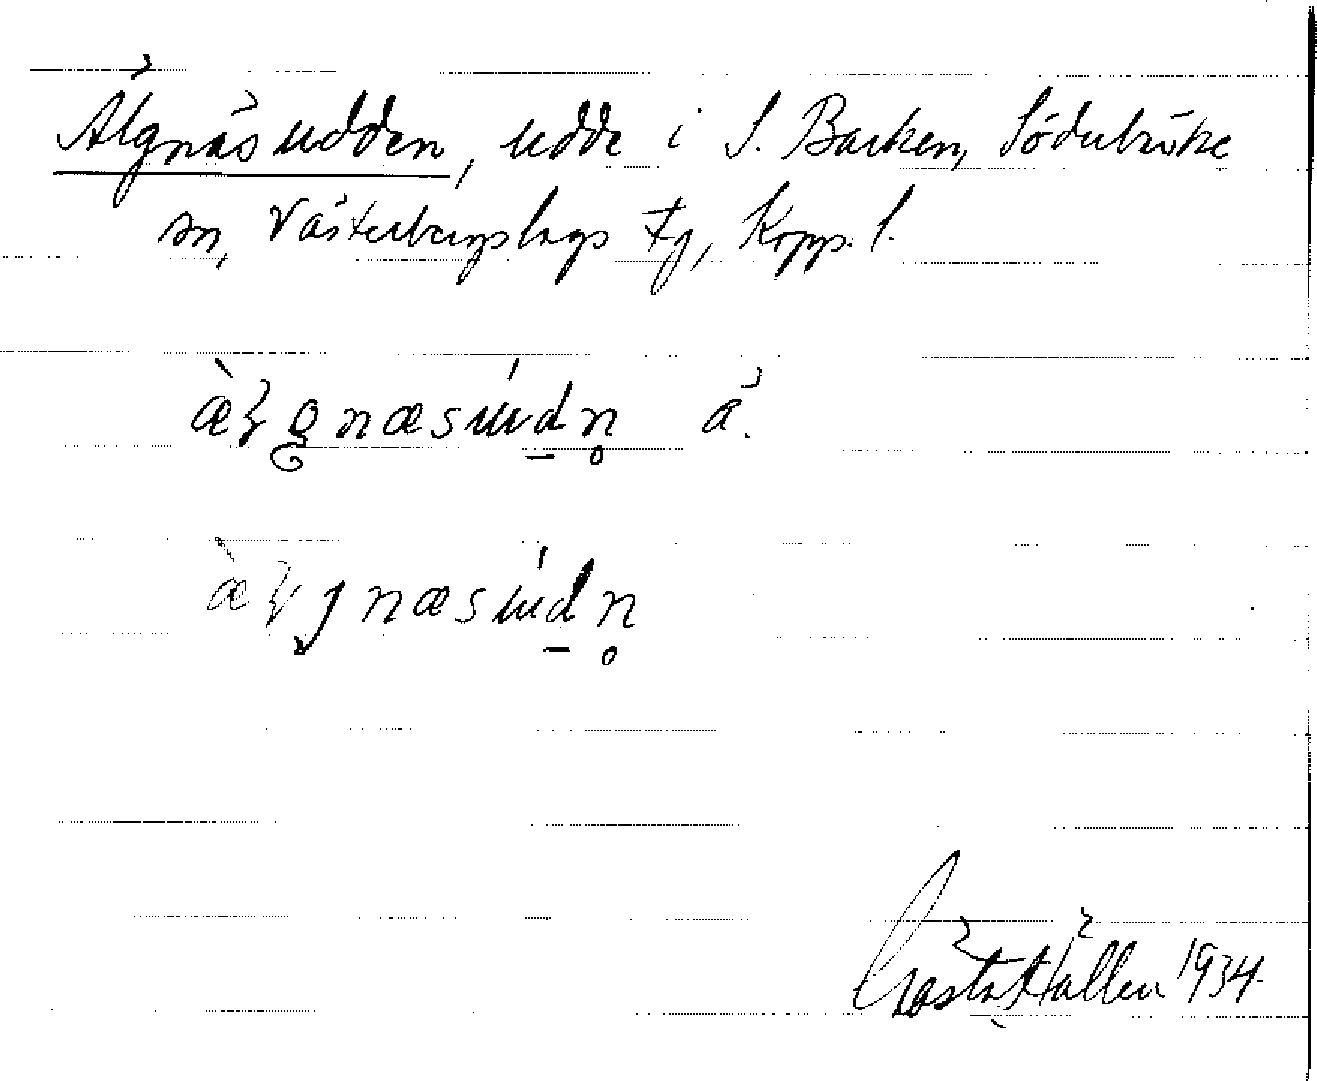 Älgnäsudden, udde i S. Barken, Söderbärke
sn, Västerbergslags tg, Kopp. l.
æ̀lgnæsúdn̥ ä.
æ̀ljnæsúdn̥
Gösta Hallen 1934